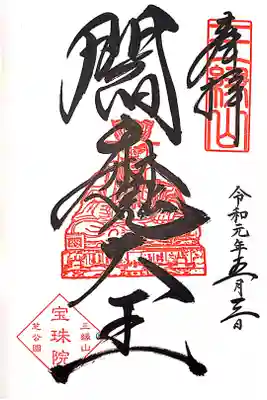 奉拝
三縁山
閻魔大王
令和元年五月三日
三縁山
宝珠院
芝公園